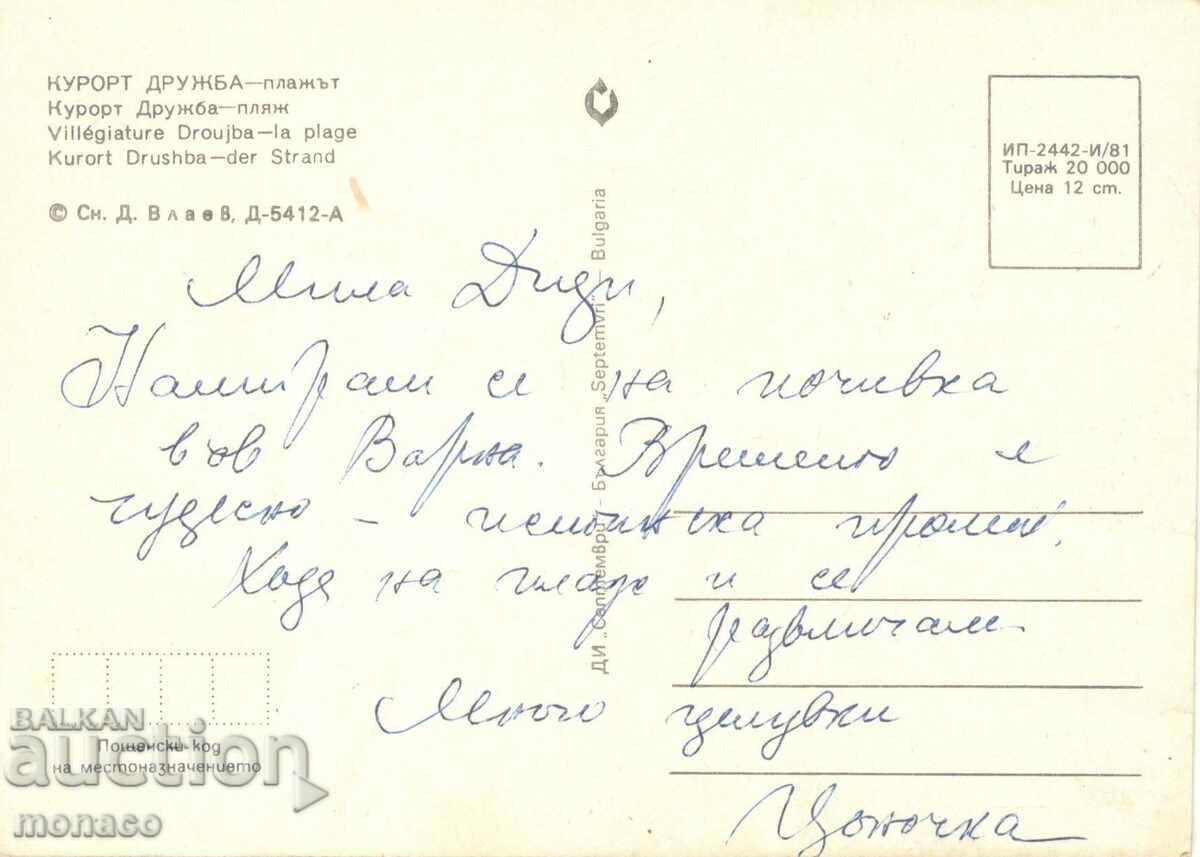 КУРОРТ ДРУЖБА—плажът
Курорт Дружба—пляж
Villégiature Droujba—la plage
Kurort Drushba—der Strand
© Сн. Д. Влаев, Д-5412-А
ИП-2442-И/81
Тираж 20 000
Цена 12 ст.
ДИ „Септември“ - България „Septemvri“ — Bulgaria
Мила Диди,
Намирам се на почивка
във Варна. Времето е
чудесно — истинска
Ходя на плаж и се
развличам
Много целувки
Цоночка
Пощенски код
на местоназначението
BALKAN
auction
monaco